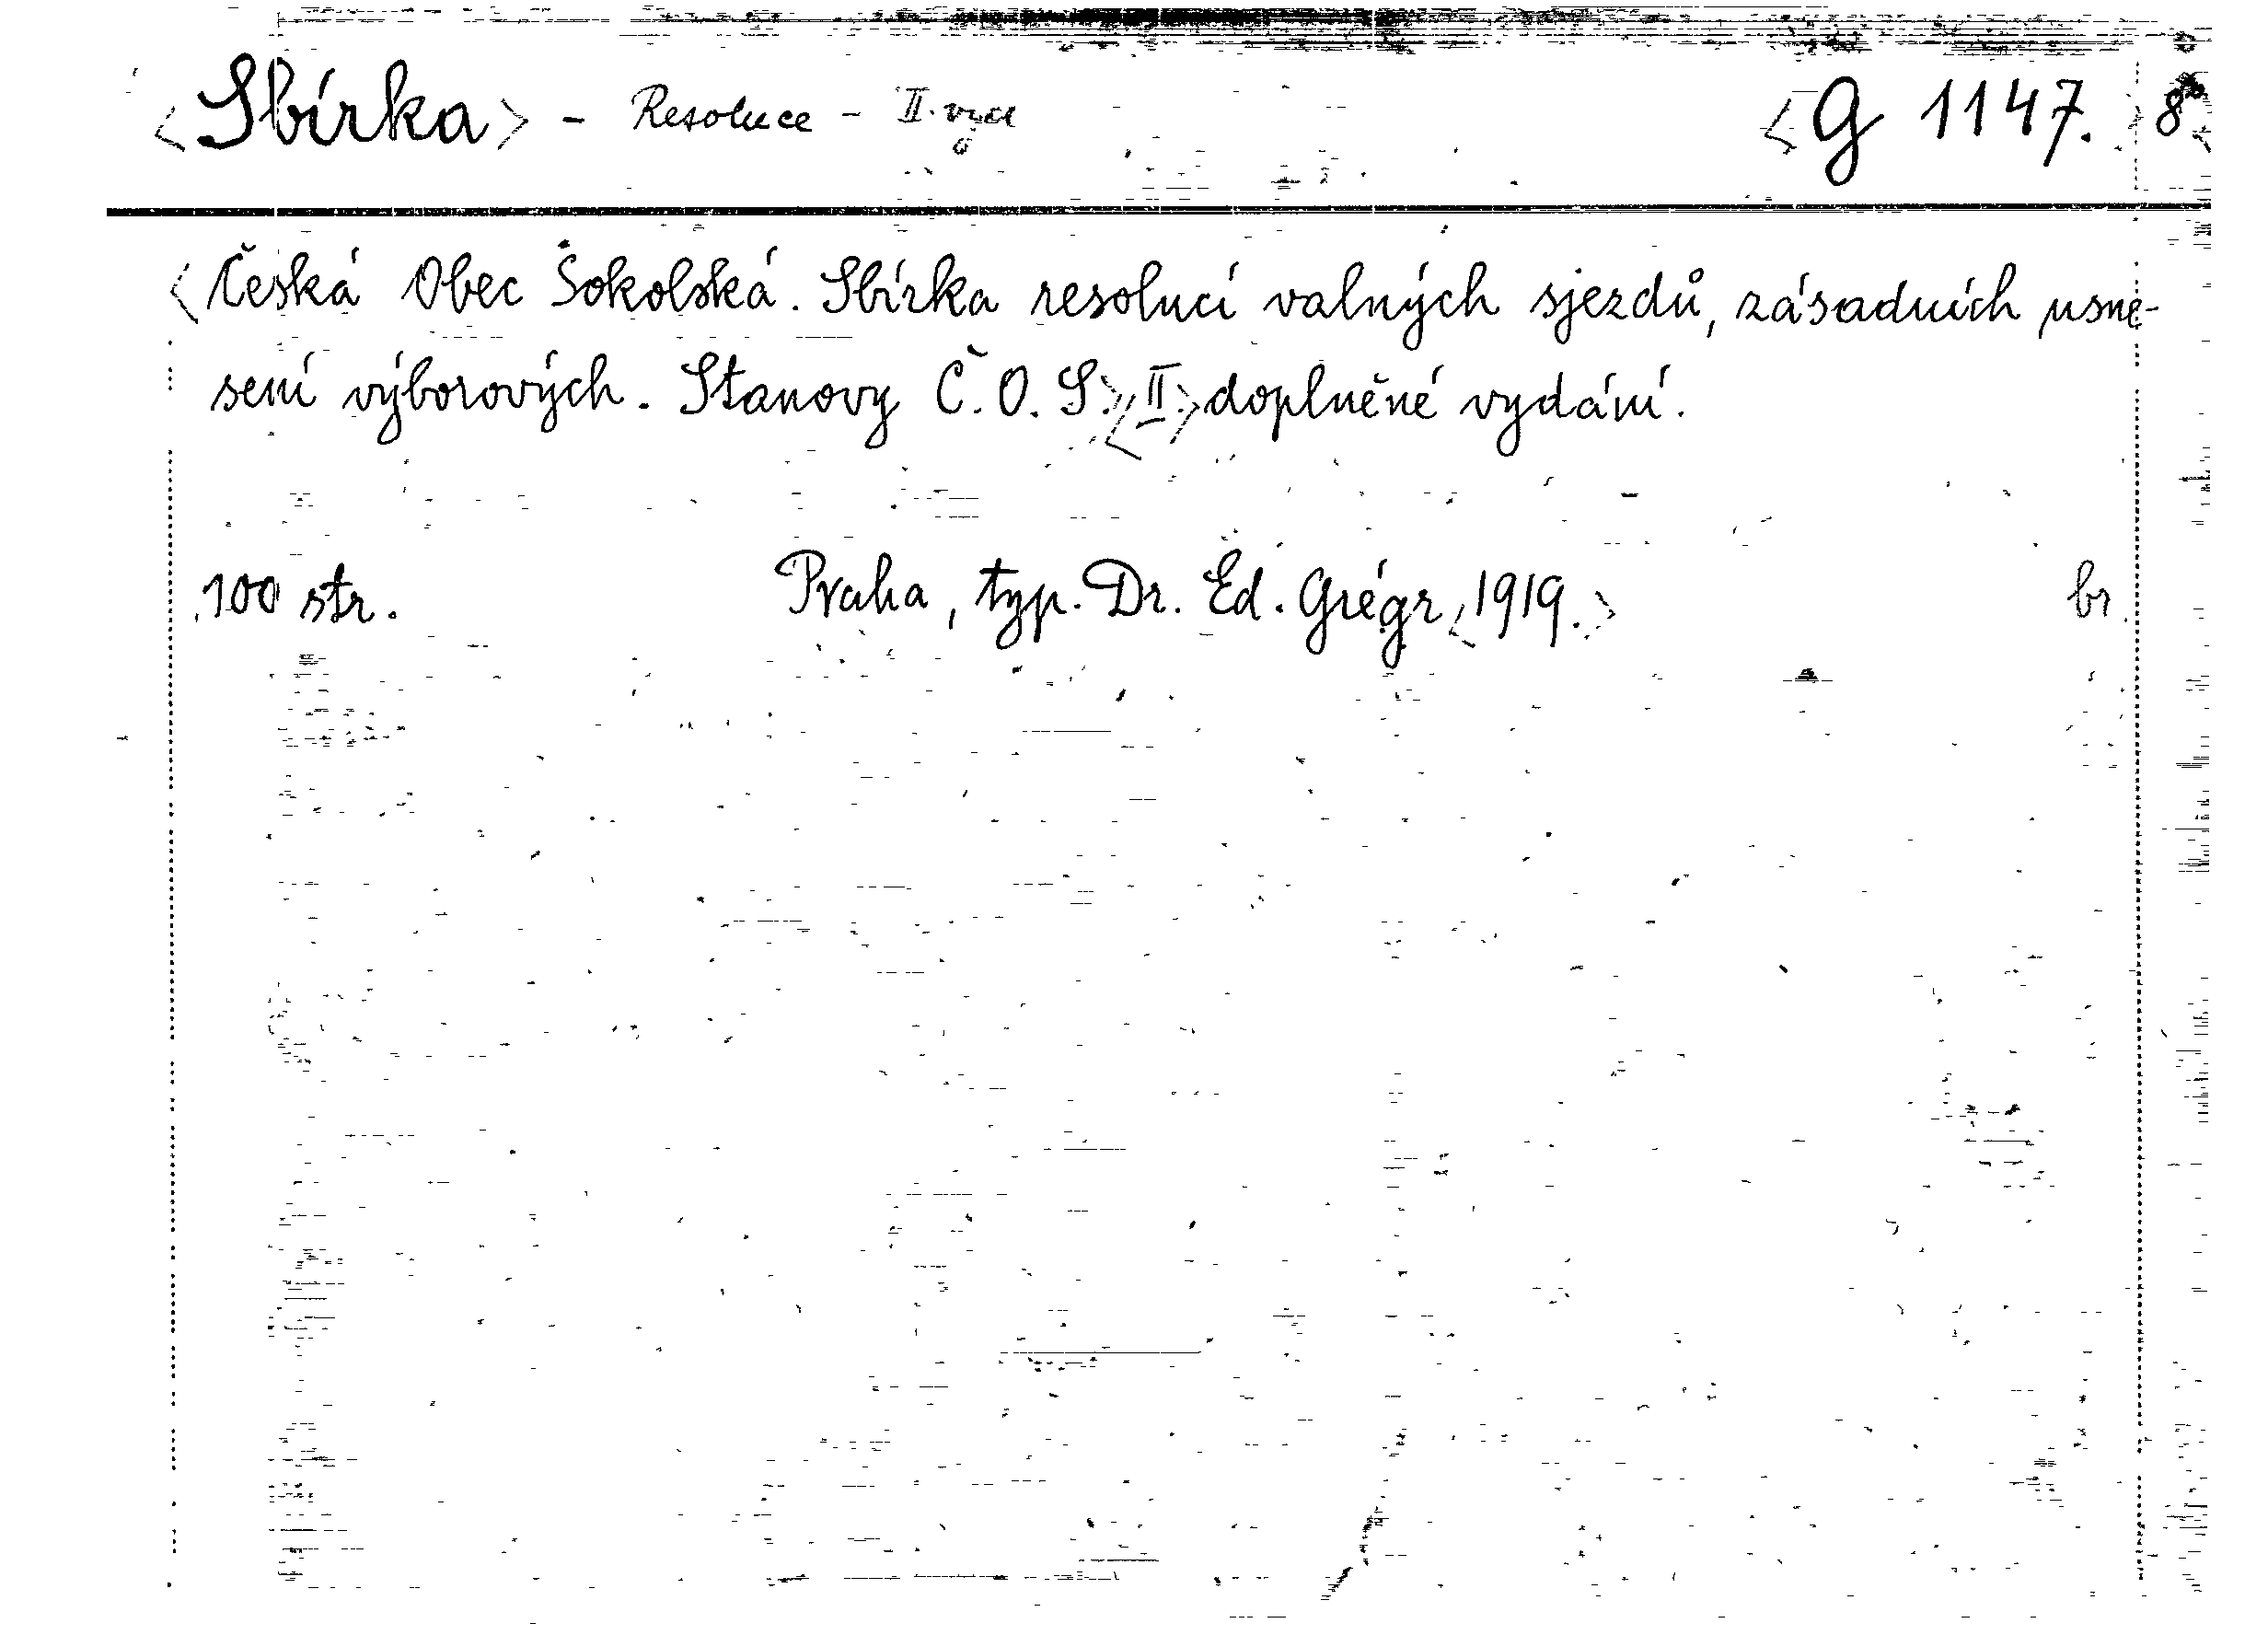 <Sbírka> - Resoluce - II. vyd <G 1147. 8°
<Česká Obec Sokolská. Sbírka resolucí valných sjezdů, zásadních usne-
sení výborových. Stanovy Č. O. S.> <II.> doplněné vydání.
100 str. Praha, typ. Dr. Ed. Grégr <1919.> br.